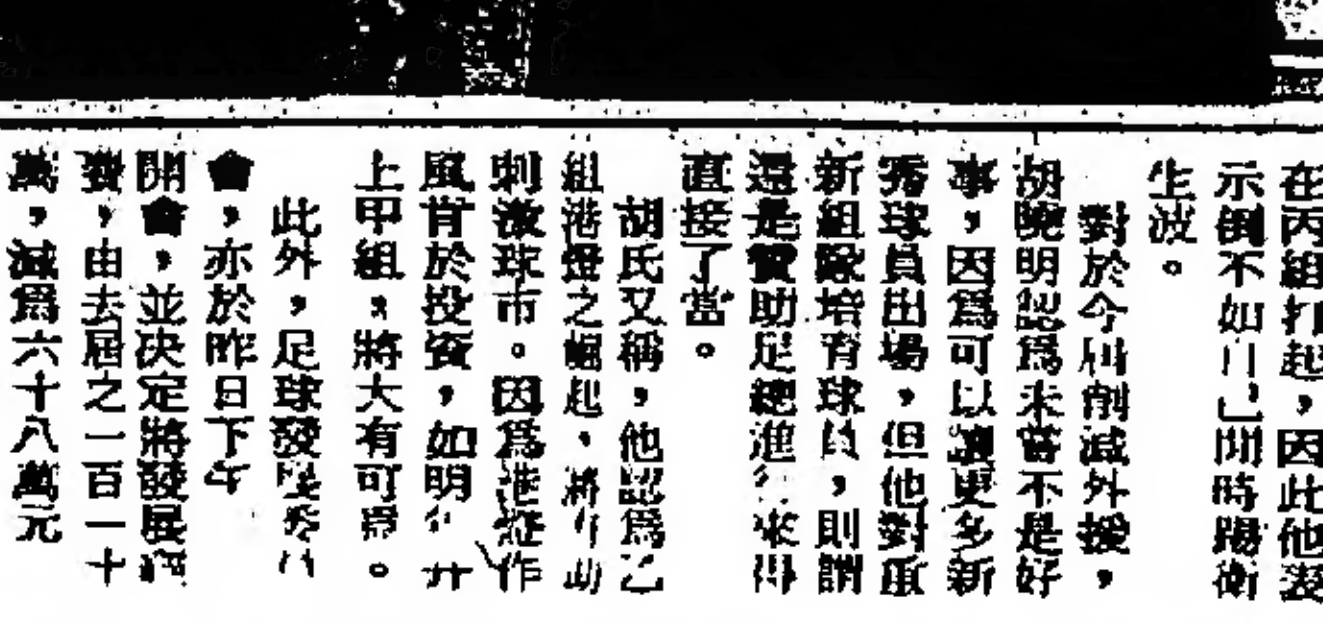 在丙組打起，因此他表
示倒不如「」閒時踢街
生波。
對於今削減外援，
胡曉明認爲未嘗不是好
事，因爲可以讓更多新
秀球員出場，但他對重
新組隊培育球員，則謂
還是贊助足總進行來得
直接了當。
胡氏又稱，他認爲乙
組港燈之崛起，將有助
刺激球市。因爲港燈作
風肯於投資，如明年升
上甲組，將大有可爲。
此外，足球發展委員
會，亦於昨日下午
開會，並決定將發展經
費，由去屆之一百一十
萬，減爲六十八萬元